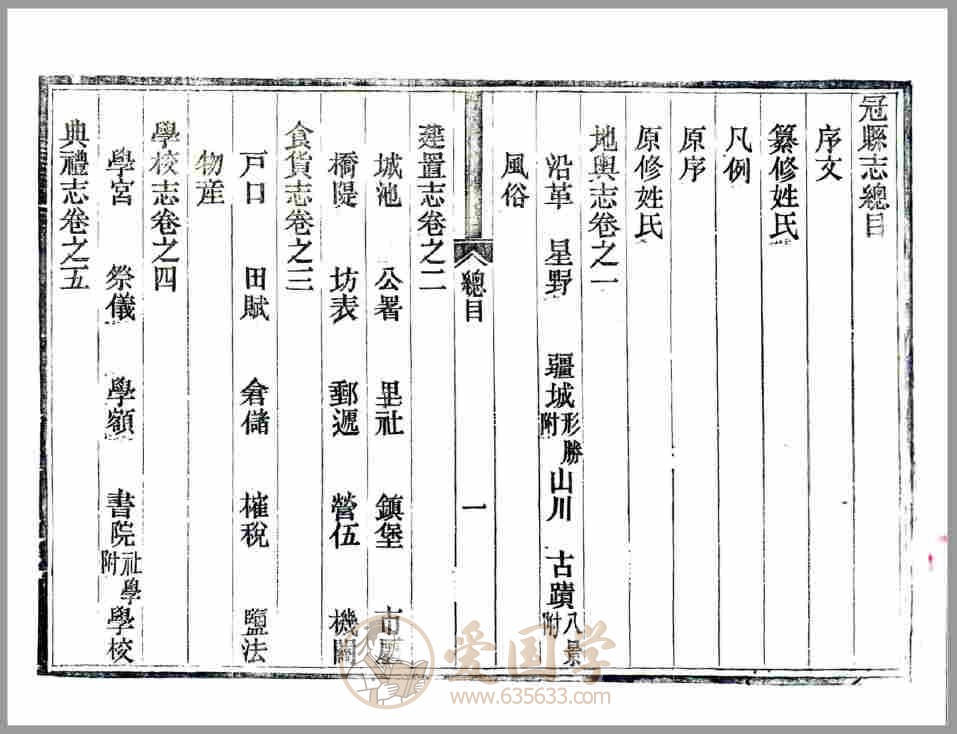 冠縣志總目
序文
纂修姓氏
凡例
原序
原修姓氏
地輿志卷之一
沿革 星野 疆域形勝附 山川 古蹟八景附
風俗
總目 一
建置志卷之二
城池 公署 里社 鎮堡 市廛
橋隄 坊表 郵遞 營伍 機關
食貨志卷之三
戸口 田賦 倉儲 榷稅 鹽法
物産
學校志卷之四
學宮 祭儀 學額 書院社學附 學校
典禮志卷之五
爱国学
www.635633.com